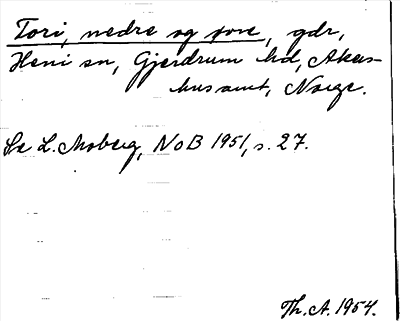 Tori, nedre og øvre, gdr,
Heni sn, Gjerdrum hd, Akers-
hus amt, Norge.
Se L. Moberg, NoB 1951, s. 27.
Th. A. 1954.